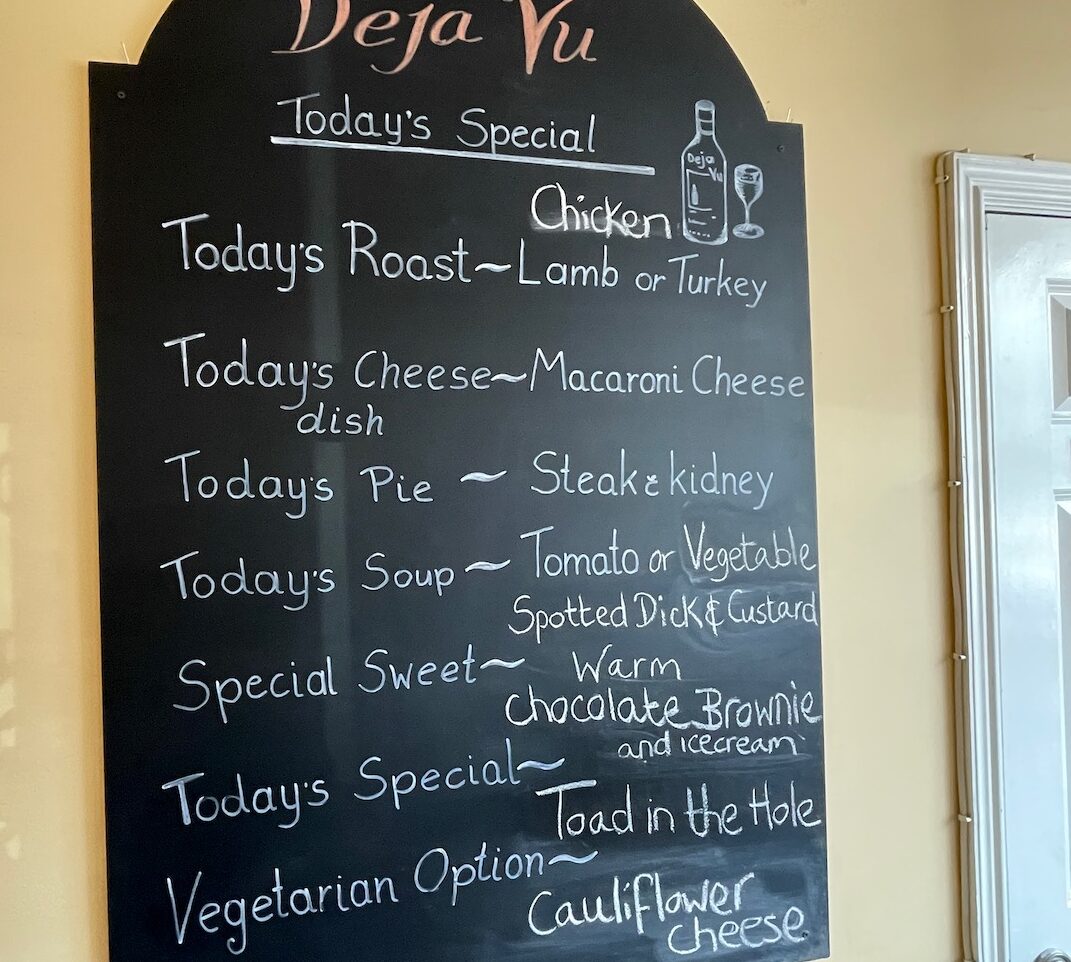 Deja Vu
Today's Special
Deja Vu
Chicken
Today's Roast~Lamb or Turkey
Today's Cheese~Macaroni Cheese
dish
Today's Pie ~ Steak & kidney
Today's Soup ~ Tomato or Vegetable
Spotted Dick & Custard
Special Sweet~ Warm
chocolate Brownie
and icecream
Today's Special~
Toad in the Hole
Vegetarian Option~
Cauliflower
cheese